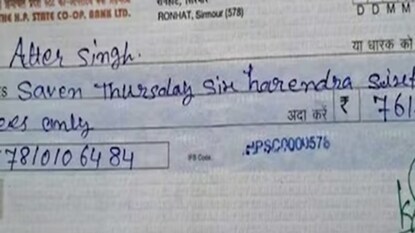 THE H.P. STATE CO-OP. BANK LTD.
RONHAT, Sirmour (578)
D D M M
Atter Singh.
या धारक को
Saven Thursday Six harendra Sixt
ees only
अदा करें ₹ 761
7810106484
IFS Code
HPSC0000576